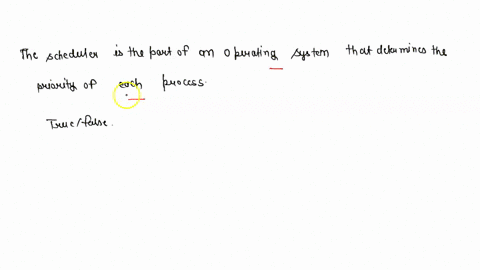 The scheduler is the part of an operating system that determines the
priority of each process.
True/false.